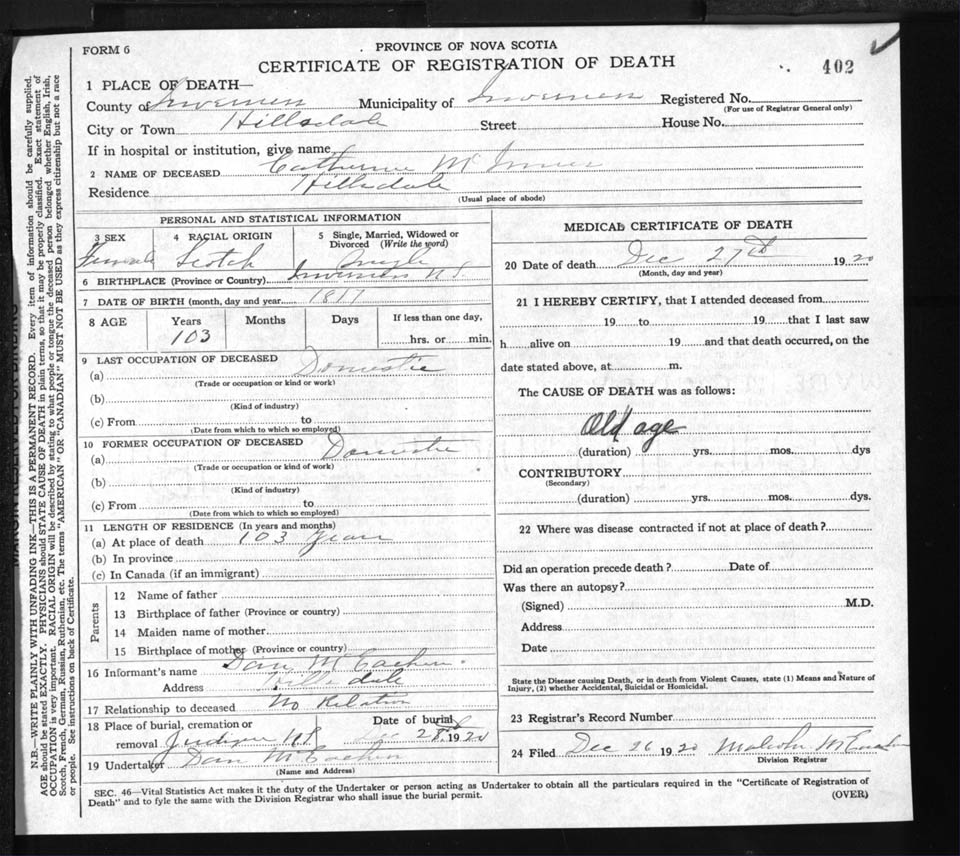 FORM 6
PROVINCE OF NOVA SCOTIA
CERTIFICATE OF REGISTRATION OF DEATH
402
1 PLACE OF DEATH—
County of Inverness Municipality of Inverness Registered No.
(For use of Registrar General only)
City or Town Hillsdale Street House No.
If in hospital or institution, give name
2 NAME OF DECEASED Catherine McInnes
Residence Hillsdale
(Usual place of abode)
PERSONAL AND STATISTICAL INFORMATION
3 SEX 4 RACIAL ORIGIN 5 Single, Married, Widowed or Divorced (Write the word)
Female Scotch Single
6 BIRTHPLACE (Province or Country) Inverness N.S.
7 DATE OF BIRTH (month, day and year) 1817
8 AGE Years Months Days If less than one day,
103 hrs. or min.
9 LAST OCCUPATION OF DECEASED
(a) Domestic
(Trade or occupation or kind or work)
(b)
(Kind of industry)
(c) From to
(Date from which to which so employed)
10 FORMER OCCUPATION OF DECEASED
(a) Domestic
(Trade or occupation or kind of work)
(b)
(Kind of industry)
(c) From to
(Date from which to which so employed)
11 LENGTH OF RESIDENCE (In years and months)
(a) At place of death 103 years
(b) In province
(c) In Canada (if an immigrant)
Parents
12 Name of father
13 Birthplace of father (Province or country)
14 Maiden name of mother
15 Birthplace of mother (Province or country)
16 Informant's name Dan McEachen
Address Hillsdale
17 Relationship to deceased No Relation
18 Place of burial, cremation or Date of burial
removal Judique N.S. Dec 28th 1920
19 Undertaker Dan McEachen
(Name and Address)
MEDICAL CERTIFICATE OF DEATH
20 Date of death Dec 27th 1920
(Month, day and year)
21 I HEREBY CERTIFY, that I attended deceased from
19 to 19 that I last saw
h alive on 19 and that death occurred, on the
date stated above, at m.
The CAUSE OF DEATH was as follows:
Old age
(duration) yrs. mos. dys
CONTRIBUTORY
(Secondary)
(duration) yrs. mos. dys.
22 Where was disease contracted if not at place of death?
Did an operation precede death? Date of
Was there an autopsy?
(Signed) M.D.
Address
Date
State the Disease causing Death, or in death from Violent Causes, state (1) Means and Nature of
Injury, (2) whether Accidental, Suicidal or Homicidal.
23 Registrar's Record Number
24 Filed Dec 26 1920 Malcolm McEachen
Division Registrar
SEC. 46—Vital Statistics Act makes it the duty of the Undertaker or person acting as Undertaker to obtain all the particulars required in the "Certificate of Registration of
Death" and to fyle the same with the Division Registrar who shall issue the burial permit.
(OVER)
MARGIN RESERVED FOR BINDING
N.B.—WRITE PLAINLY WITH UNFADING INK—THIS IS A PERMANENT RECORD. Every item of information should be carefully supplied.
AGE should be stated EXACTLY. PHYSICIANS should STATE CAUSE OF DEATH in plain terms, so that it may be properly classified. Exact statement of
OCCUPATION is very important. RACIAL ORIGIN will be described by stating to what people or tongue the deceased person belonged whether English, Irish,
Scotch, French, German, Russian, Ruthenian, etc. The terms "AMERICAN" OR "CANADIAN" MUST NOT BE USED as they express citizenship but not a race
or people. See instructions on back of Certificate.